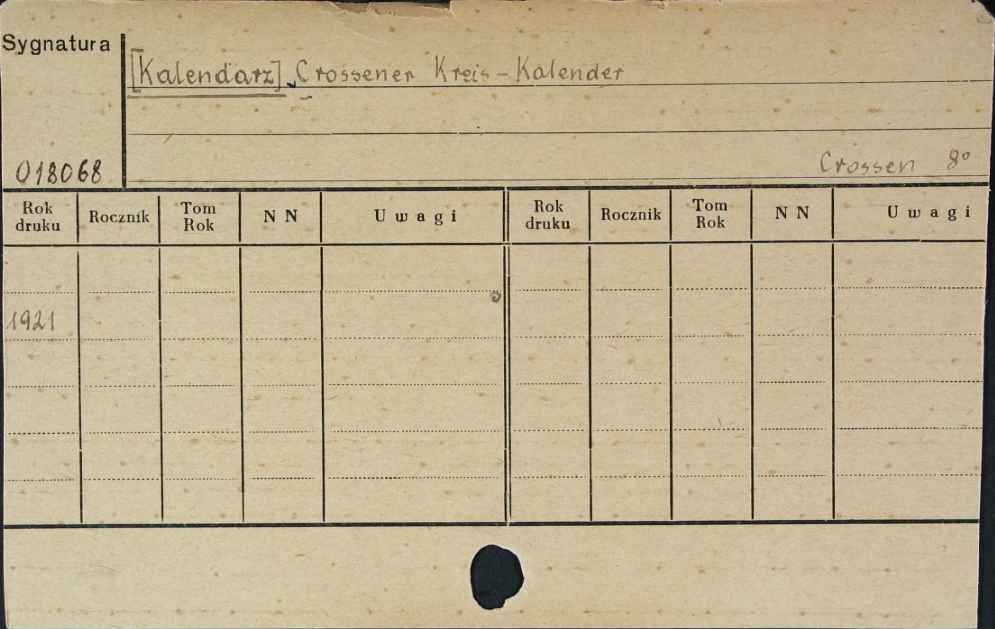 Sygnatura
[Kalendarz] Crossener Kreis-Kalender
Crossen 8º
018068
Rok druku Rocznik Tom Rok NN Uwagi Rok druku Rocznik Tom Rok NN Uwagi
1921